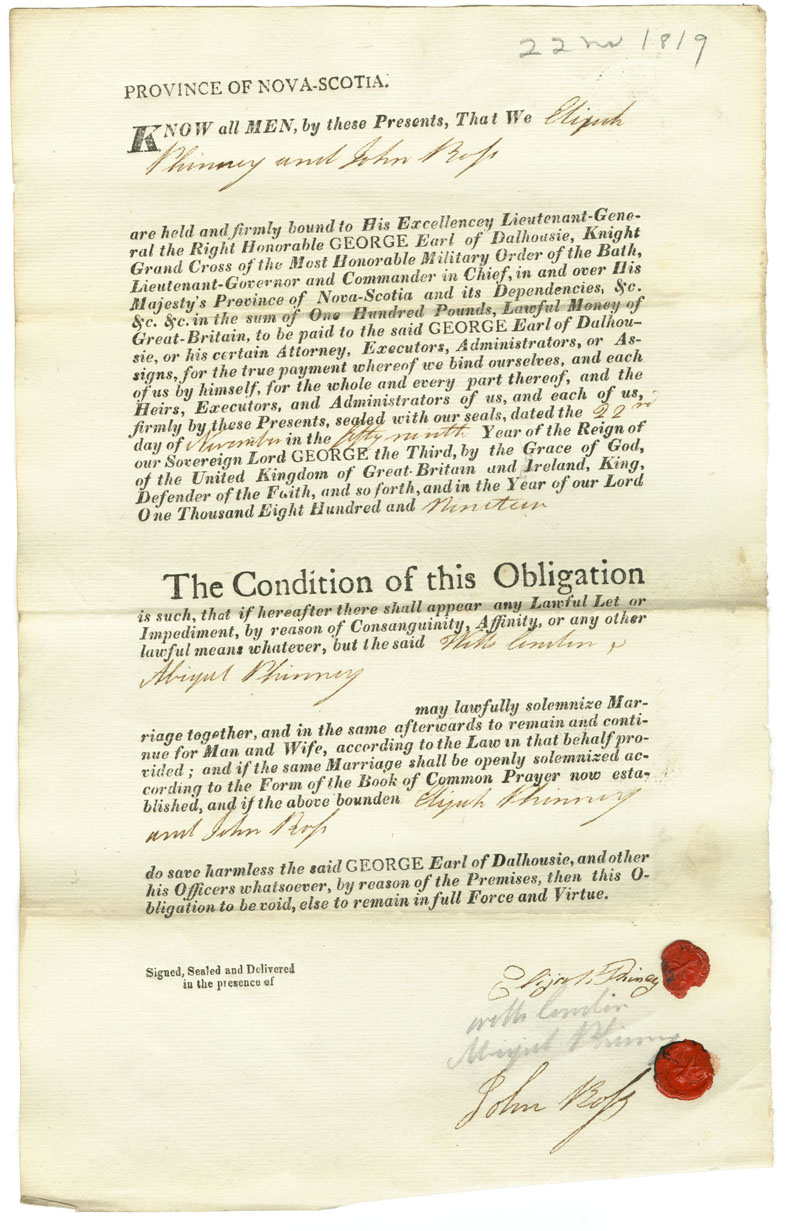 22nd 1819
PROVINCE OF NOVA-SCOTIA.
KNOW all MEN, by these Presents, That We Elijah
Phinney and John Ross
are held and firmly bound to His Excellencey Lieutenant-Gene-
ral the Right Honorable GEORGE Earl of Dalhousie, Knight
Grand Cross of the Most Honorable Military Order of the Bath,
Lieutenant-Governor and Commander in Chief, in and over His
Majesty's Province of Nova-Scotia and its Dependencies, &c.
&c. &c. in the sum of One Hundred Pounds, Lawful Money of
Great-Britain, to be paid to the said GEORGE Earl of Dalhou-
sie, or his certain Attorney, Executors, Administrators, or As-
signs, for the true payment whereof we bind ourselves, and each
of us by himself, for the whole and every part thereof, and the
Heirs, Executors, and Administrators of us, and each of us,
firmly by these Presents, sealed with our seals, dated the 22nd
day of November in the fifty ninth Year of the Reign of
our Sovereign Lord GEORGE the Third, by the Grace of God,
of the United Kingdom of Great-Britain and Ireland, King,
Defender of the Faith, and so forth, and in the Year of our Lord
One Thousand Eight Hundred and Nineteen
The Condition of this Obligation
is such, that if hereafter there shall appear any Lawful Let or
Impediment, by reason of Consanguinity, Affinity, or any other
lawful means whatever, but the said
Abigal Phinney
may lawfully solemnize Mar-
riage together, and in the same afterwards to remain and conti-
nue for Man and Wife, according to the Law in that behalf pro-
vided; and if the same Marriage shall be openly solemnized ac-
cording to the Form of the Book of Common Prayer now esta-
blished, and if the above bounden Elijah Phinney
and John Ross
do save harmless the said GEORGE Earl of Dalhousie, and other
his Officers whatsoever, by reason of the Premises, then this O-
bligation to be void, else to remain in full Force and Virtue.
Signed, Sealed and Delivered
in the presence of
Elijah Phiney
Abigal Phinney
John Ross